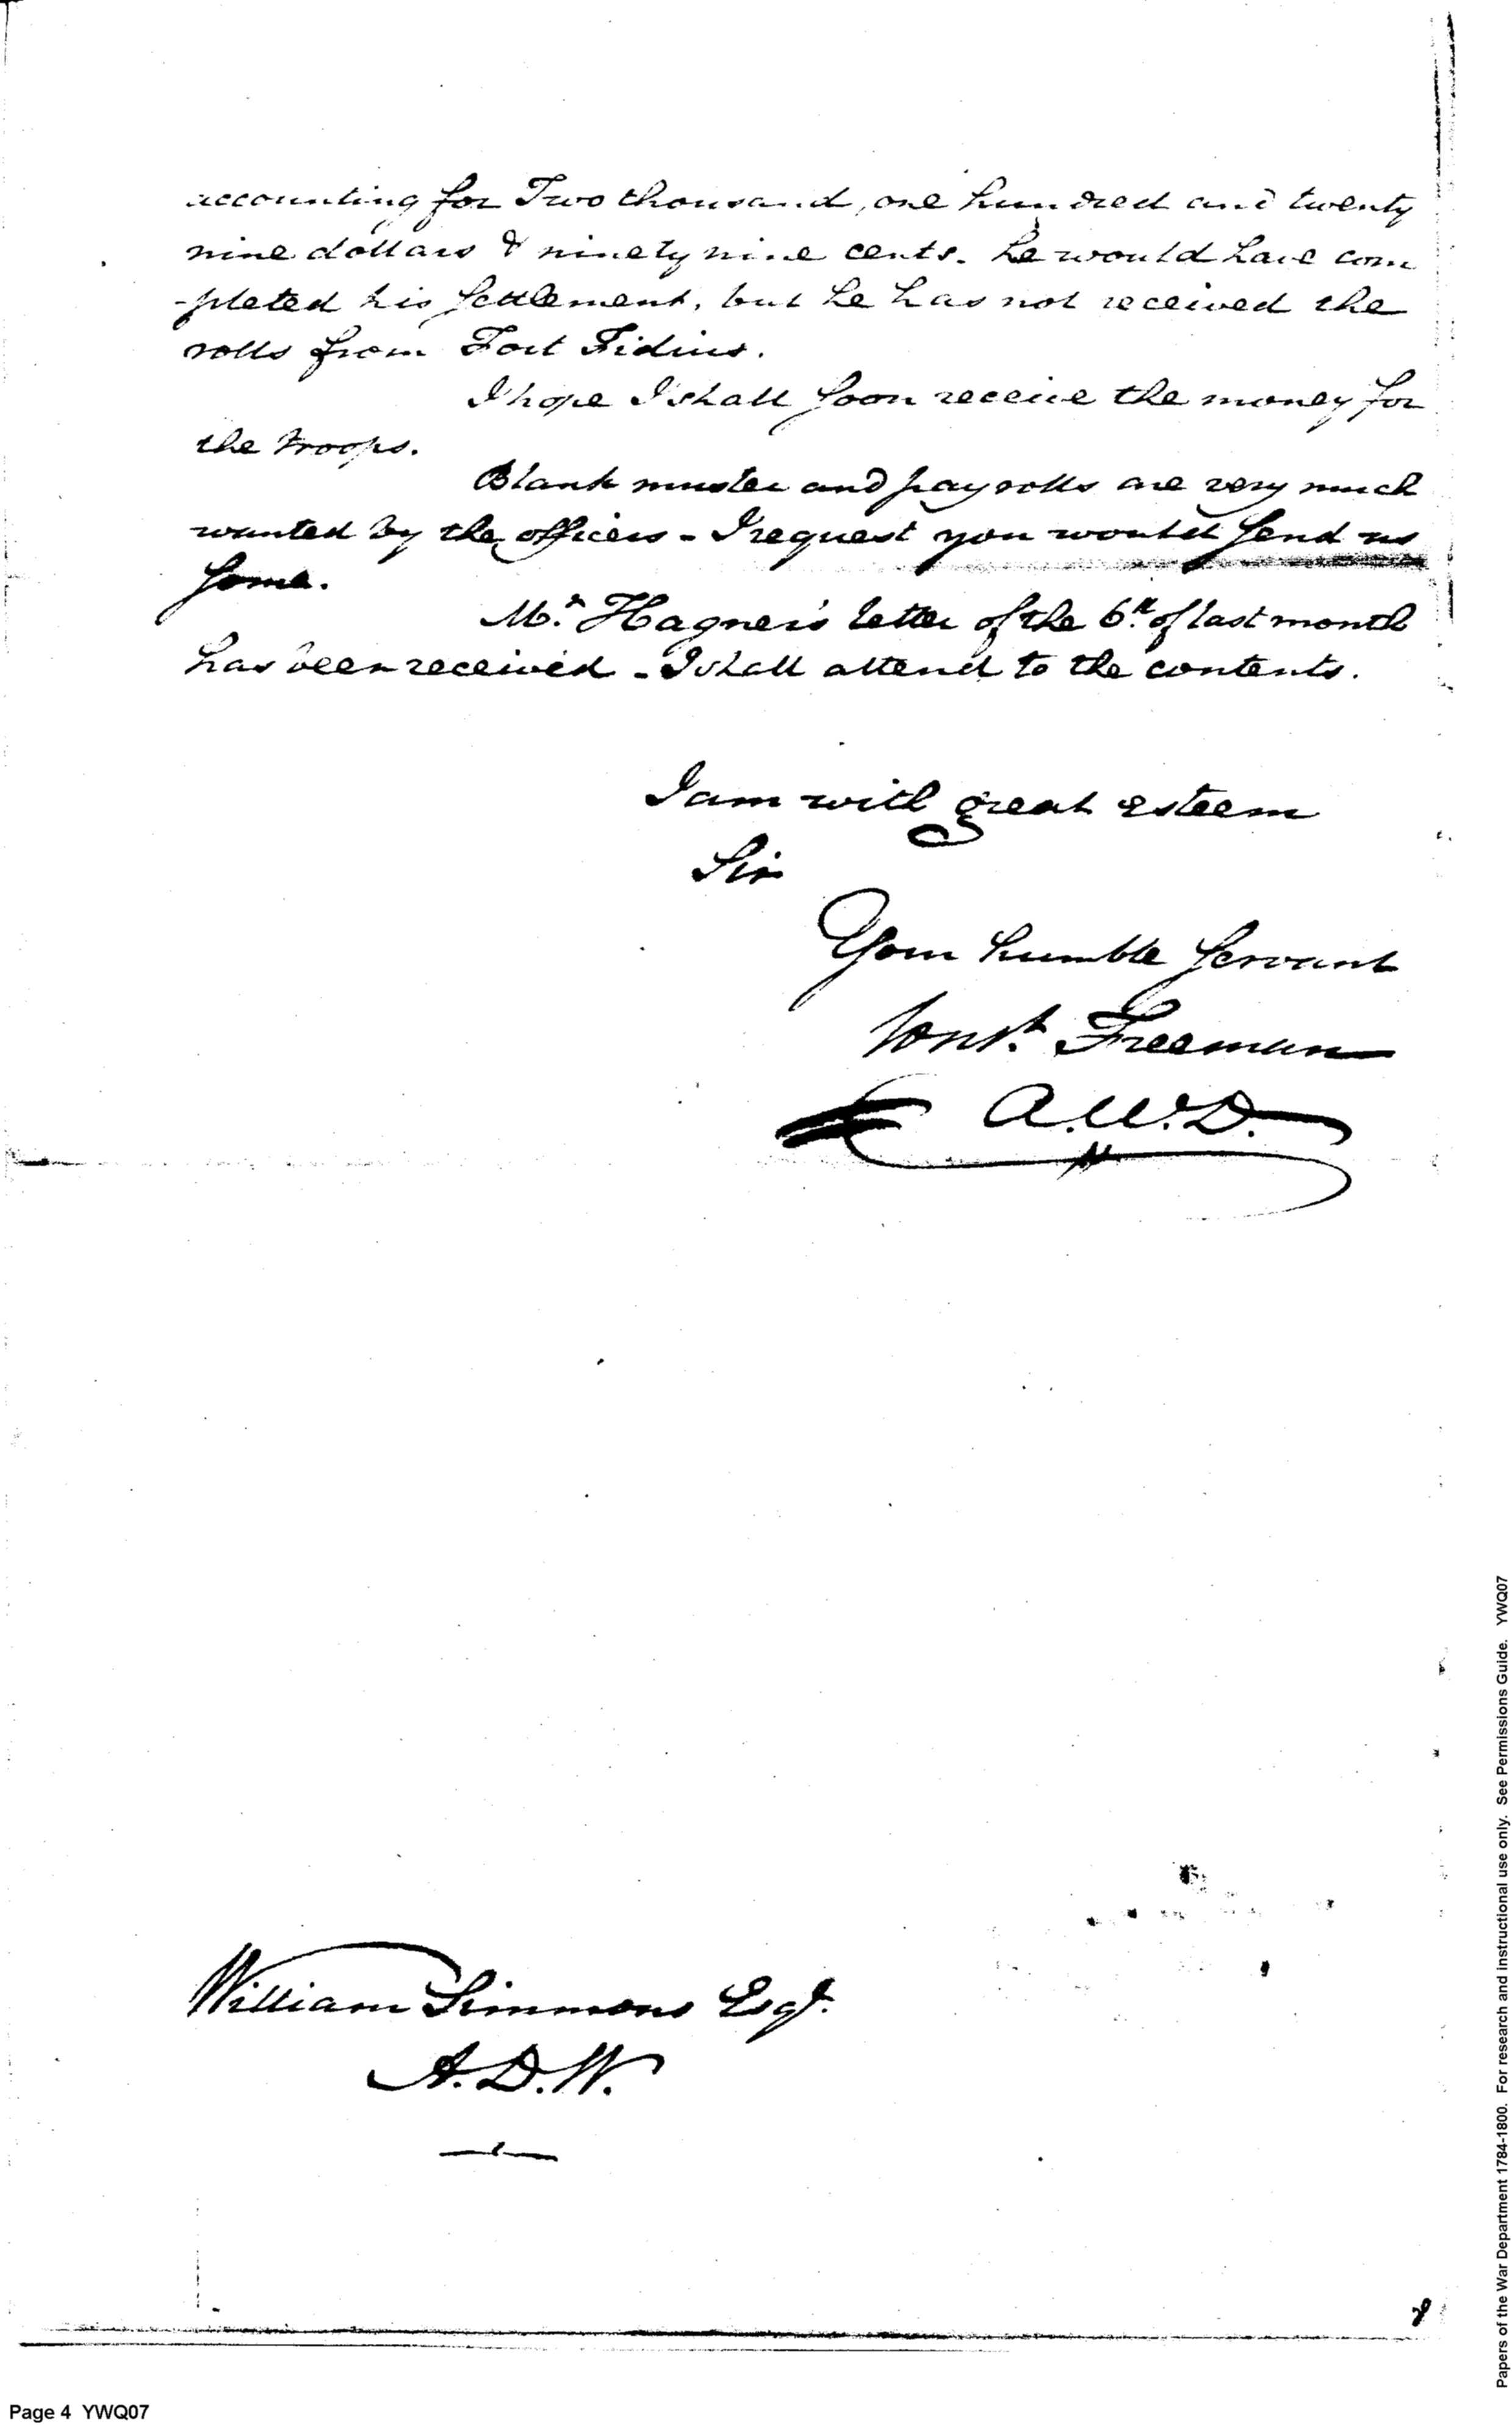 accounting for Two thousand, one hundred and twenty
nine dollars & ninety nine cents. he would have com
-pleted his settlement, but he has not received the
rolls from Fort Fidius.
I hope I shall soon receive the money for
the troops.
Blank muster and pay rolls are very much
wanted by the officers - I request you would send us
some.
Mr. Hagner's letter of the 6th. of last month
has been received - I shall attend to the contents.
I am with great esteem
Sir
Your humble servant
Const. Freeman
A.W.D.
William Simmons Esqr.
A.D.W.
Page 4 YWQ07
Papers of the War Department 1784-1800. For research and instructional use only. See Permissions Guide. YWQ07